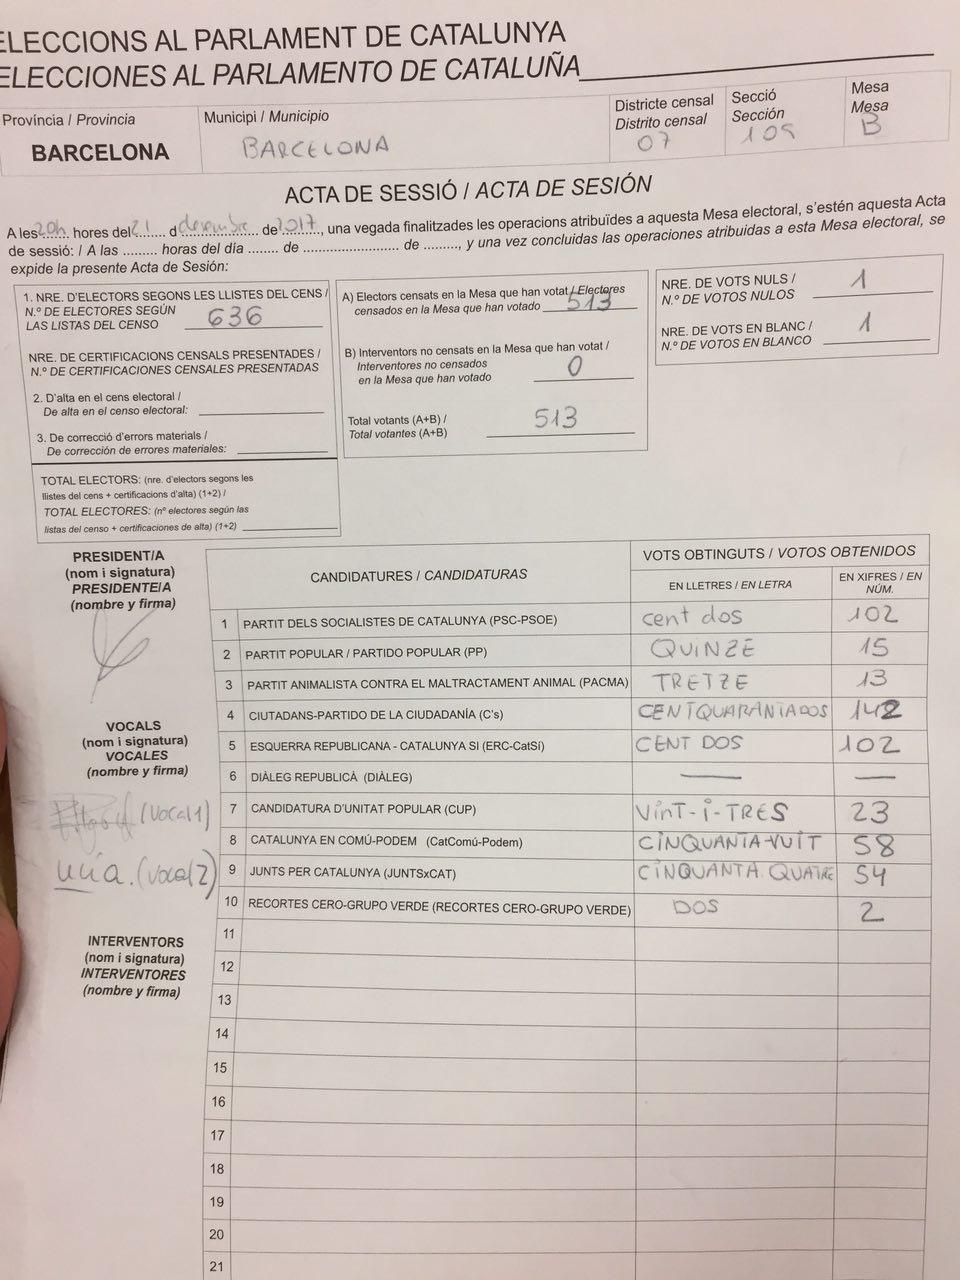 ELECCIONS AL PARLAMENT DE CATALUNYA
ELECCIONES AL PARLAMENTO DE CATALUÑA
Província / Provincia
BARCELONA
Municipi / Municipio
BARCELONA
Districte censal
Distrito censal
07
Secció
Sección
109
Mesa
Mesa
B
ACTA DE SESSIÓ / ACTA DE SESIÓN
A les 20h hores del 21 d desembre de 2017, una vegada finalitzades les operacions atribuïdes a aquesta Mesa electoral, s'estén aquesta Acta
de sessió: / A las ......... horas del día ........ de ........................ de ........., y una vez concluidas las operaciones atribuidas a esta Mesa electoral, se
expide la presente Acta de Sesión:
1. NRE. D'ELECTORS SEGONS LES LLISTES DEL CENS /
N.º DE ELECTORES SEGÚN
LAS LISTAS DEL CENSO 636
NRE. DE CERTIFICACIONS CENSALS PRESENTADES /
N.º DE CERTIFICACIONES CENSALES PRESENTADAS
2. D'alta en el cens electoral /
De alta en el censo electoral:
3. De correcció d'errors materials /
De corrección de errores materiales:
TOTAL ELECTORS: (nre. d'electors segons les
llistes del cens + certificacions d'alta) (1+2) /
TOTAL ELECTORES: (nº electores según las
listas del censo + certificaciones de alta) (1+2)
A) Electors censats en la Mesa que han votat / Electores
censados en la Mesa que han votado 513
B) Interventors no censats en la Mesa que han votat /
Interventores no censados
en la Mesa que han votado 0
Total votants (A+B) /
Total votantes (A+B) 513
NRE. DE VOTS NULS /
N.º DE VOTOS NULOS 1
NRE. DE VOTS EN BLANC /
N.º DE VOTOS EN BLANCO 1
PRESIDENT/A
(nom i signatura)
PRESIDENTE/A
(nombre y firma)
VOCALS
(nom i signatura)
VOCALES
(nombre y firma)
(Vocal 1)
(Vocal 2)
INTERVENTORS
(nom i signatura)
INTERVENTORES
(nombre y firma)
CANDIDATURES / CANDIDATURAS
VOTS OBTINGUTS / VOTOS OBTENIDOS
EN LLETRES / EN LETRA
EN XIFRES / EN
NÚM.
1 PARTIT DELS SOCIALISTES DE CATALUNYA (PSC-PSOE) cent dos 102
2 PARTIT POPULAR / PARTIDO POPULAR (PP) QUINZE 15
3 PARTIT ANIMALISTA CONTRA EL MALTRACTAMENT ANIMAL (PACMA) TRETZE 13
4 CIUTADANS-PARTIDO DE LA CIUDADANÍA (C's) CENTQUARANTADOS 142
5 ESQUERRA REPUBLICANA - CATALUNYA SI (ERC-CatSí) CENT DOS 102
6 DIÀLEG REPUBLICÀ (DIÀLEG) — —
7 CANDIDATURA D'UNITAT POPULAR (CUP) VINT-I-TRES 23
8 CATALUNYA EN COMÚ-PODEM (CatComú-Podem) CINQUANTA-VUIT 58
9 JUNTS PER CATALUNYA (JUNTSxCAT) CINQUANTA.QUATRE 54
10 RECORTES CERO-GRUPO VERDE (RECORTES CERO-GRUPO VERDE) DOS 2
11
12
13
14
15
16
17
18
19
20
21